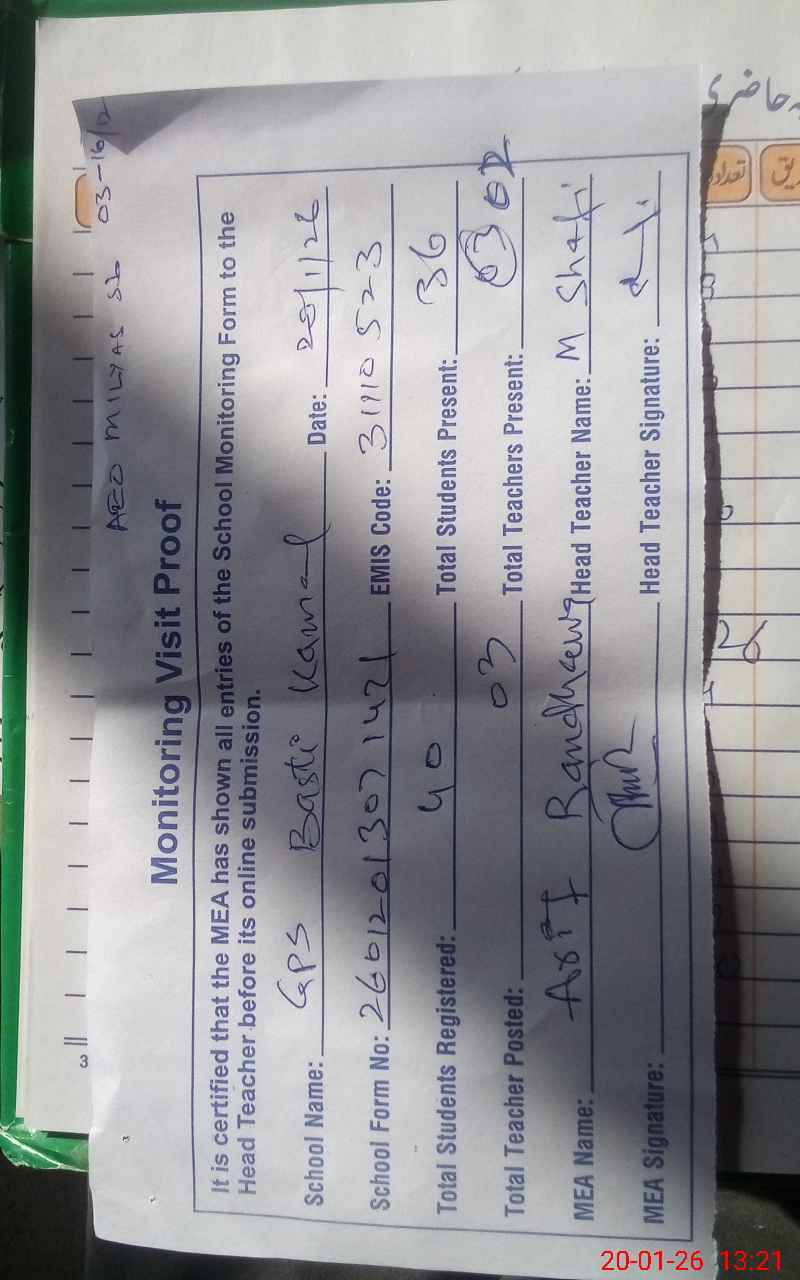 AEO MILYAS Sb 03-16/12
Monitoring Visit Proof
It is certified that the MEA has shown all entries of the School Monitoring Form to the
Head Teacher before its online submission.
School Name: GPS Basti Kamal Date: 20/1/26
School Form No: 2601201307 1421 EMIS Code: 31110523
Total Students Registered: 40 Total Students Present: 36
Total Teacher Posted: 03 Total Teachers Present: 03 02
MEA Name: Asif Randhawa Head Teacher Name: M Shafi
MEA Signature: Head Teacher Signature:
3
حاضری
تعداد
20-01-26 13:21